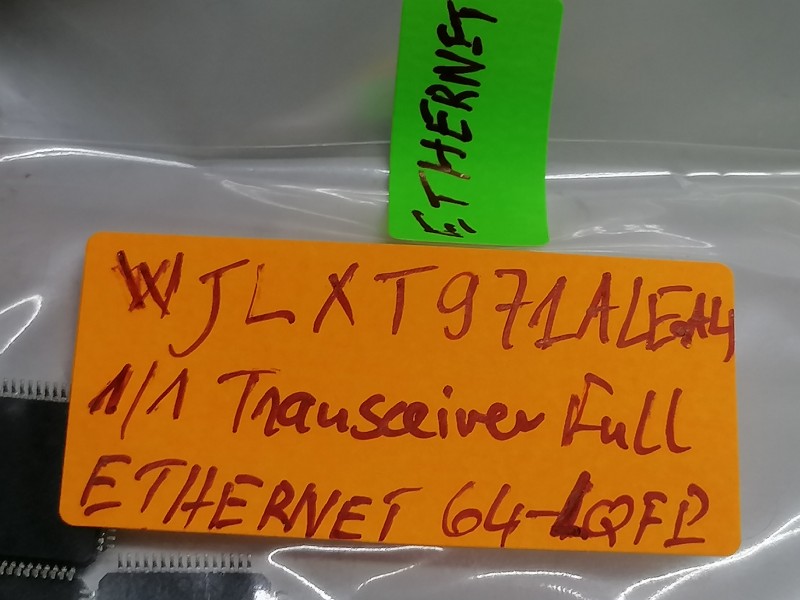 ETHERNET
WJLXT971ALE.A4
1/1 Transceiver Full
ETHERNET 64-LQFP